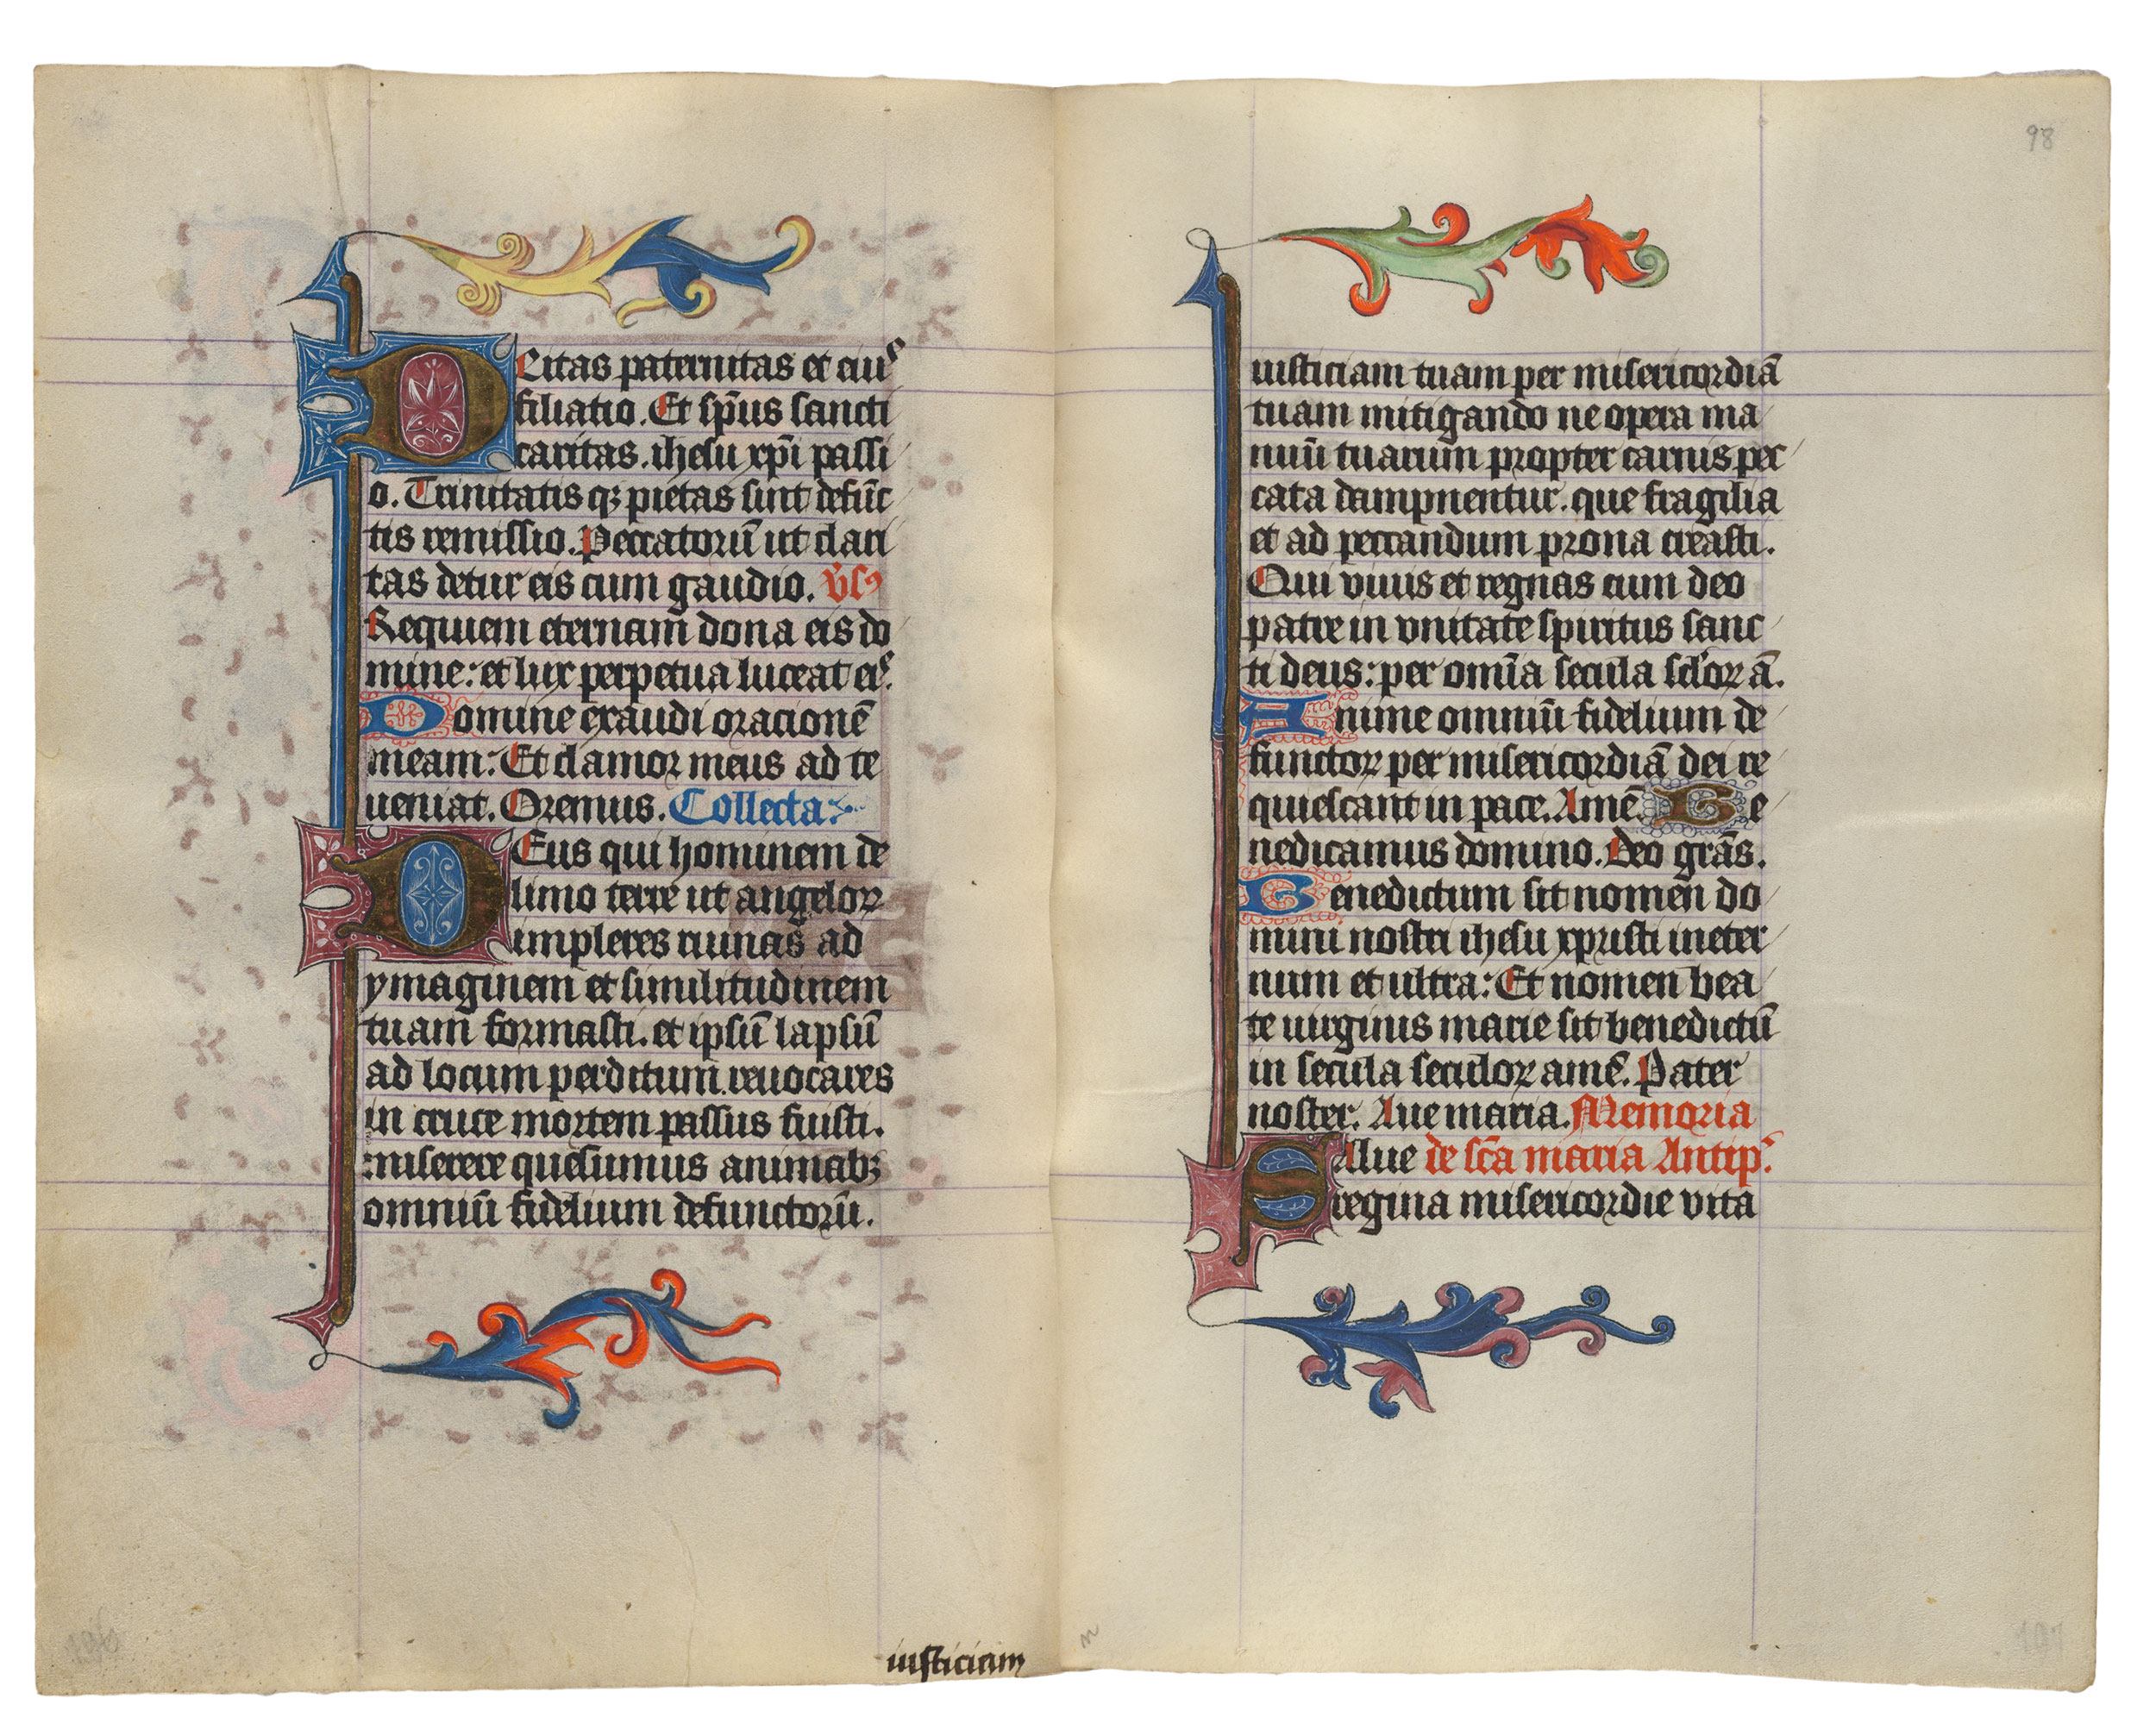 DEitas paternitas et eiuˢ
filiatio. Et sp̄us sancti
caritas. ihesu xp̄i passi
o. Trinitatis qꝫ pietas sint defūc
tis remissio. Peccatorū ut clari
tas detur eis cum gaudio. v̄sꝰ
Requiem eternam dona eis do
mine: et lux perpetua luceat eiˢ.
Domine exaudi oracionē
meam: Et clamor meus ad te
ueniat. Oremus. Collecta:
DEus qui hominem de
limo terre ut angeloꝝ
impleres ruinas ad
ymaginem et similitudinem
tuam formasti. et ipsū lapsū
ad locum perditum. reuocares
in cruce mortem passus fuisti.
miserere quesumus animabꝫ
omniū fidelium defunctorū.
iusticiam
98
iusticiam tuam per misericordiā
tuam mitigando ne opera ma
nuū tuarum propter carnis pec
cata dampnentur. que fragilia
et ad peccandum prona creasti.
Qui viuis et regnas cum deo
patre in vnitate spiritus sanc
ti deus: per om̄ia secula scl'oꝝ ā.
Anime omniū fidelium de
functoꝝ per misericordiā dei re
quiescant in pace. Amē. Be
nedicamus domino. Deo grās.
Benedictum sit nomen do
mini nostri ihesu xpristi in eter
num et ultra: Et nomen bea
te uirginis marie sit benedictū
in secula seculoꝝ amē. Pater
noster. Aue maria. Memoria
SAlue de sc̄a maria Antipˢ.
regina misericordie vita